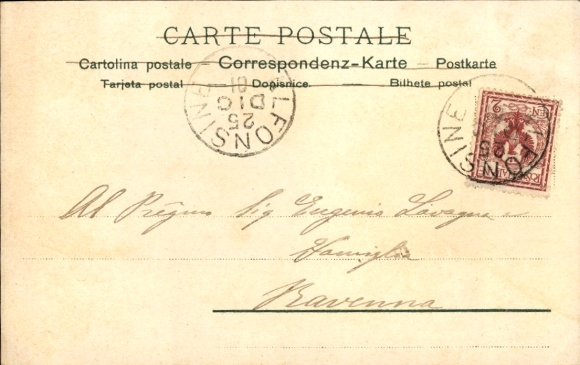 CARTE POSTALE
Cartolina postale – Correspondenz-Karte – Postkarte
Tarjeta postal – Dopisnice. – Bilhete postal
ALFONSINE
25
DIC
01
ALFONSINE
25
2
Al Pregmo Sig Eugenio Lavagna e
Famiglia
Ravenna